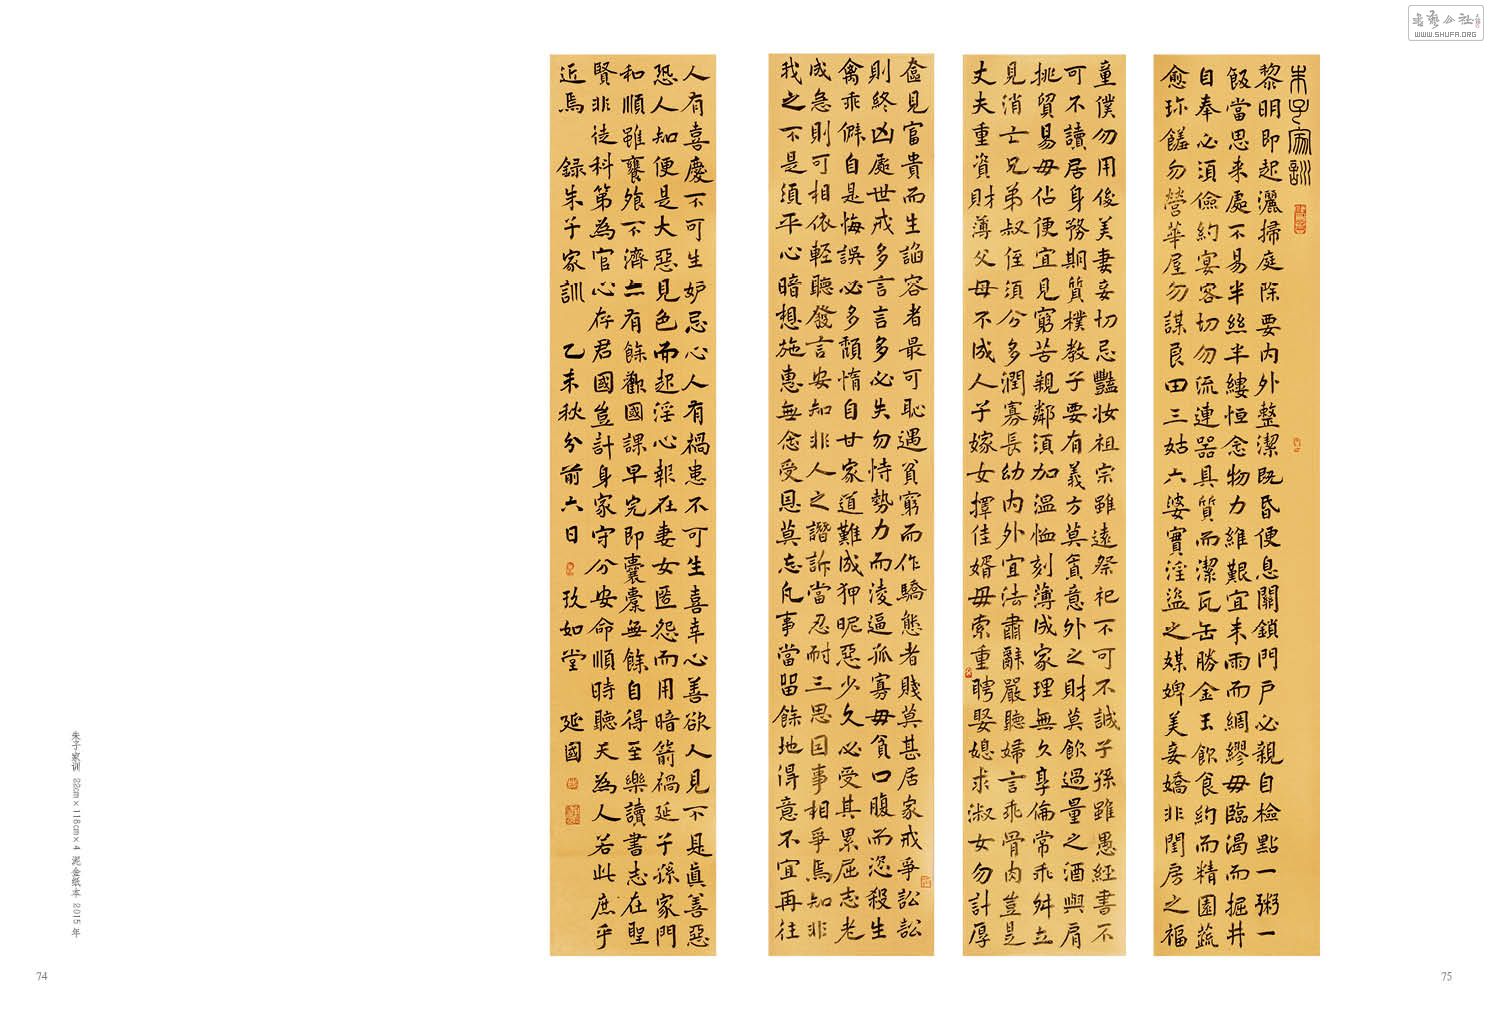 朱子家訓
黎明即起灑掃庭除要内外整潔既昏便息關鎖門戶必親自檢點一粥一
飯當思来處不易半絲半縷恒念物力維艱宜未雨而綢繆毋臨渴而掘井
自奉必須儉約宴客切勿流連器具質而潔瓦缶勝金玉飲食約而精園蔬
愈珍饈勿營華屋勿謀良田三姑六婆實淫盜之媒婢美妾嬌非閨房之福
童僕勿用俊美妻妾切忌豔妝祖宗雖遠祭祀不可不誠子孫雖愚經書不
可不讀居身務期質樸教子要有義方莫貪意外之財莫飲過量之酒與肩
挑貿易毋佔便宜見窮苦親鄰須加温恤刻薄成家理無久享倫常乖舛立
見消亡兄弟叔侄須分多潤寡長幼内外宜法肅辭嚴聽婦言乖骨肉豈是
丈夫重資財薄父母不成人子嫁女擇佳婿毋索重聘娶媳求淑女勿計厚
奩見富貴而生諂容者最可恥遇貧窮而作驕態者賤莫甚居家戒爭訟訟
則終凶處世戒多言言多必失勿恃勢力而淩逼孤寡毋貪口腹而恣殺生
禽乖僻自是悔誤必多頹惰自甘家道難成狎昵惡少久必受其累屈志老
成急則可相依輕聽發言安知非人之譖訴當忍耐三思因事相爭焉知非
我之不是須平心暗想施惠無念受恩莫忘凡事當留餘地得意不宜再往
人有喜慶不可生妒忌心人有禍患不可生喜幸心善欲人見不是真善惡
恐人知便是大惡見色而起淫心報在妻女匿怨而用暗箭禍延子孫家門
和順雖饔飧不濟亦有餘歡國課早完即囊橐無餘自得至樂讀書志在聖
賢非徒科第為官心存君國豈計身家守分安命順時聽天為人若此庶乎
近焉 録朱子家訓 乙未秋分前六日 玖如堂 延國
朱子家训 22cm×118cm×4 泥金纸本 2015年
74
75
WWW.SHUFA.ORG